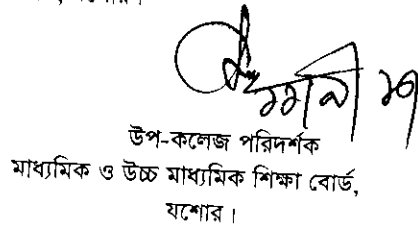 উপ-কলেজ পরিদর্শক
মাধ্যমিক ও উচ্চ মাধ্যমিক শিক্ষা বোর্ড,
যশোর।